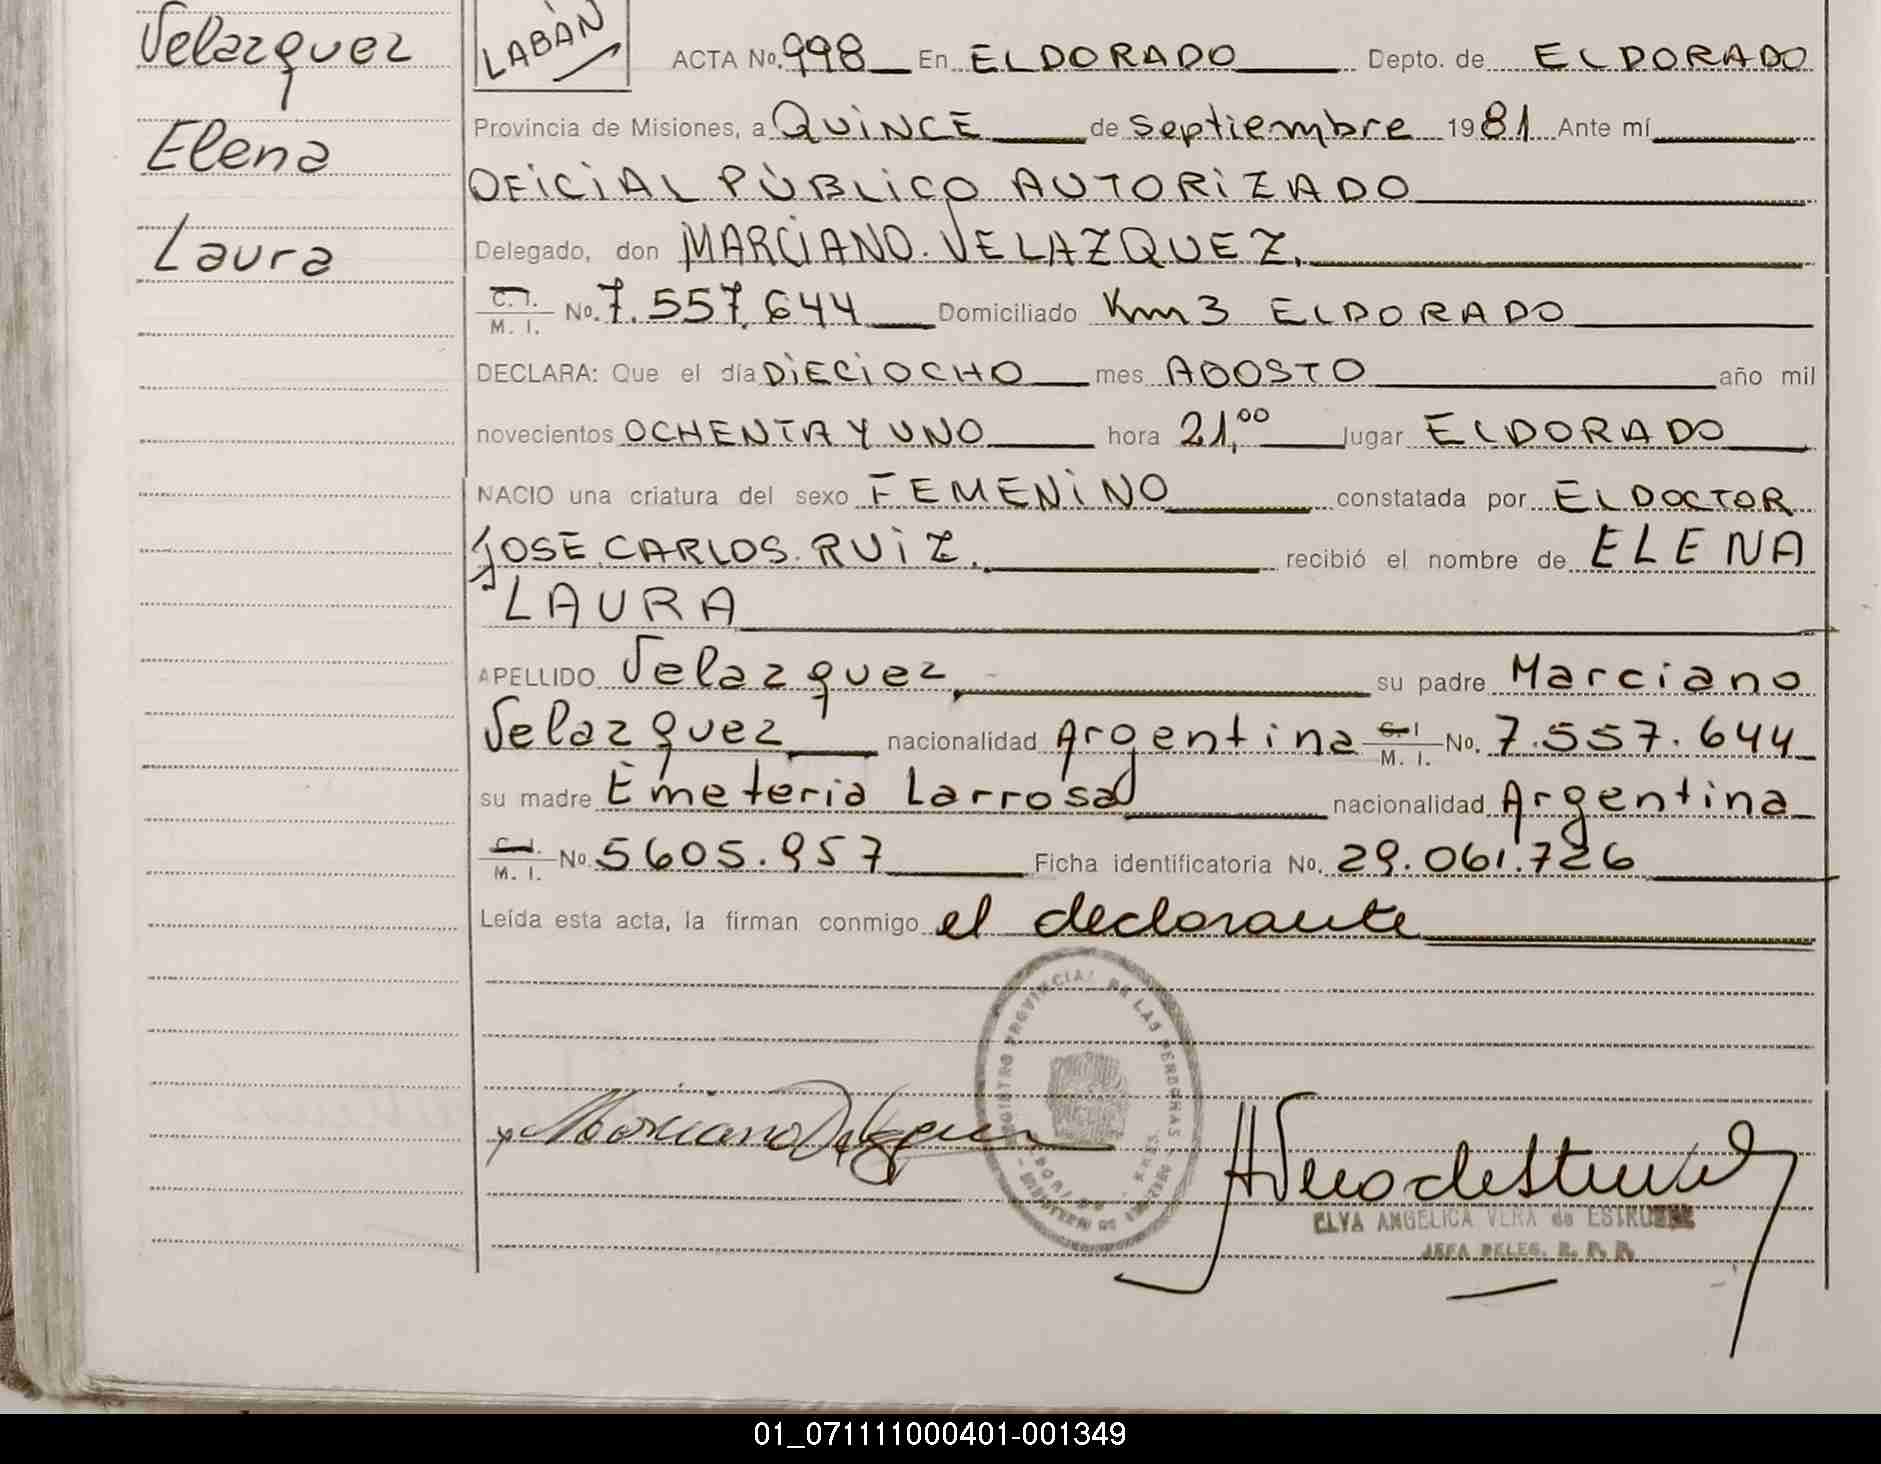 Velazquez
Elena
Laura
LABÁN
ACTA No. 998 En ELDORADO Depto. de ELDORADO
Provincia de Misiones, a QUINCE de septiembre 1981 Ante mí
OFICIAL PÚBLICO AUTORIZADO
Delegado, don MARCIANO. VELAZQUEZ.
C. I. M. I. No. 7.557.644 Domiciliado Km 3 ELDORADO
DECLARA: Que el día DIECIOCHO mes AGOSTO año mil
novecientos OCHENTA Y UNO hora 21,00 lugar ELDORADO
NACIO una criatura del sexo FEMENINO constatada por EL DOCTOR
JOSE CARLOS. RUIZ. recibió el nombre de ELENA
LAURA
APELLIDO Velazquez, su padre Marciano
Velazquez nacionalidad Argentina C. I. M. I. No. 7.557.644
su madre Emeteria Larrosa nacionalidad Argentina
C. I. M. I. No. 5605.957 Ficha identificatoria No. 29.061.726
Leída esta acta, la firman conmigo el declarante
REGISTRO PROVINCIAL DE LAS PERSONAS
Marciano Velazquez
ELVA ANGELICA VERA de ESTRU
JEFA DELEG. R. P. P.
01_071111000401-001349